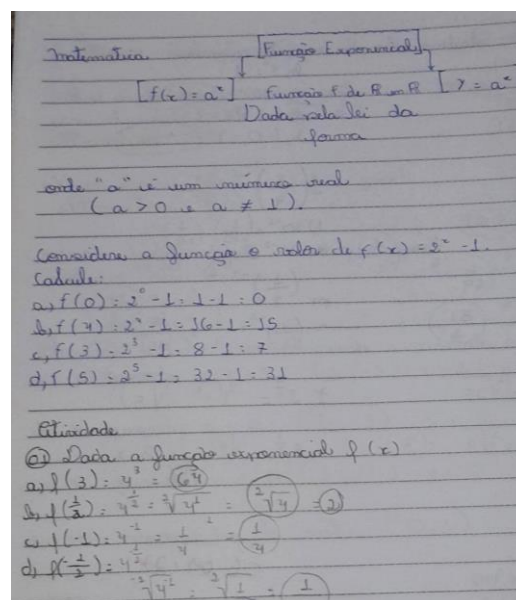 Matematica [Função Exponencial]
[f(x) = aˣ] Função f de R em R [y = aˣ
Dada pela lei da
forma
onde "a" é um número real
(a > 0 e a ≠ 1).
Considere a função e valor de f(x) = 2ˣ - 1.
Calcule:
a, f(0) = 2⁰ - 1 = 1 - 1 = 0
b, f(4) = 2⁴ - 1 = 16 - 1 = 15
c, f(3) = 2³ - 1 = 8 - 1 = 7
d, f(5) = 2⁵ - 1 = 32 - 1 = 31
Atividade
01 Dada a função exponencial f(x)
a, f(3) = 4³ = 64
b, f(1/2) = 4^(1/2) = ²√4¹ = ²√4 = 2
c, f(-1) = 4⁻¹ = 1/4 = 1/4